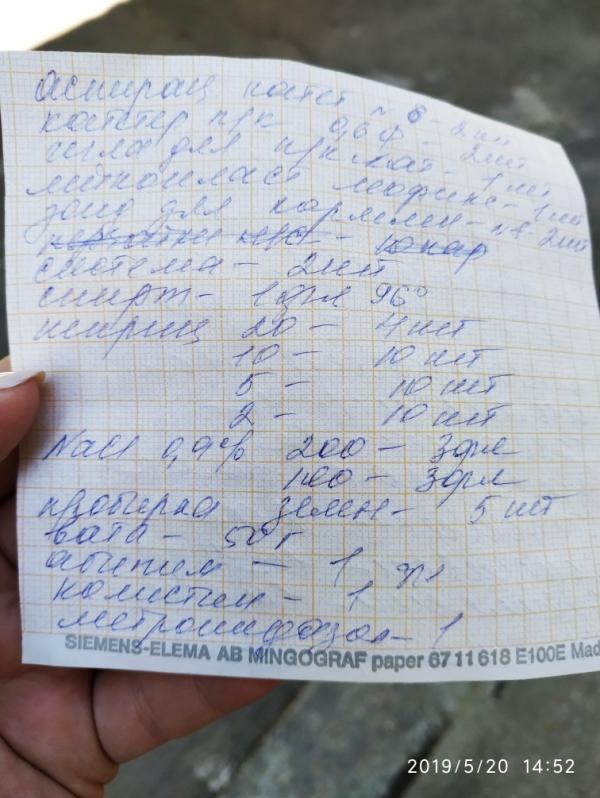 аспирац катет № 8 - 2 шт
катетер п/к 0,6 ф - 2шт
игла для п/к кат - 1 шт
лейкопласт мефикс - 1шт
зонд для кормлен - №8 2шт
перчатки н/с - 10 пар
система - 2шт
спирт - 1 фл 96°
шприц 20 - 4 шт
10 - 10 шт
5 - 10 шт
2 - 10 шт
NaCl 0,9% 200 - 3фл
100 - 3фл
пробирка зелен - 5 шт
вата - 50 г
1 фл
колистин - 1
метронидазол - 1
SIEMENS-ELEMA AB MINGOGRAF paper 67 11 618 E100E Mad
2019/5/20 14:52